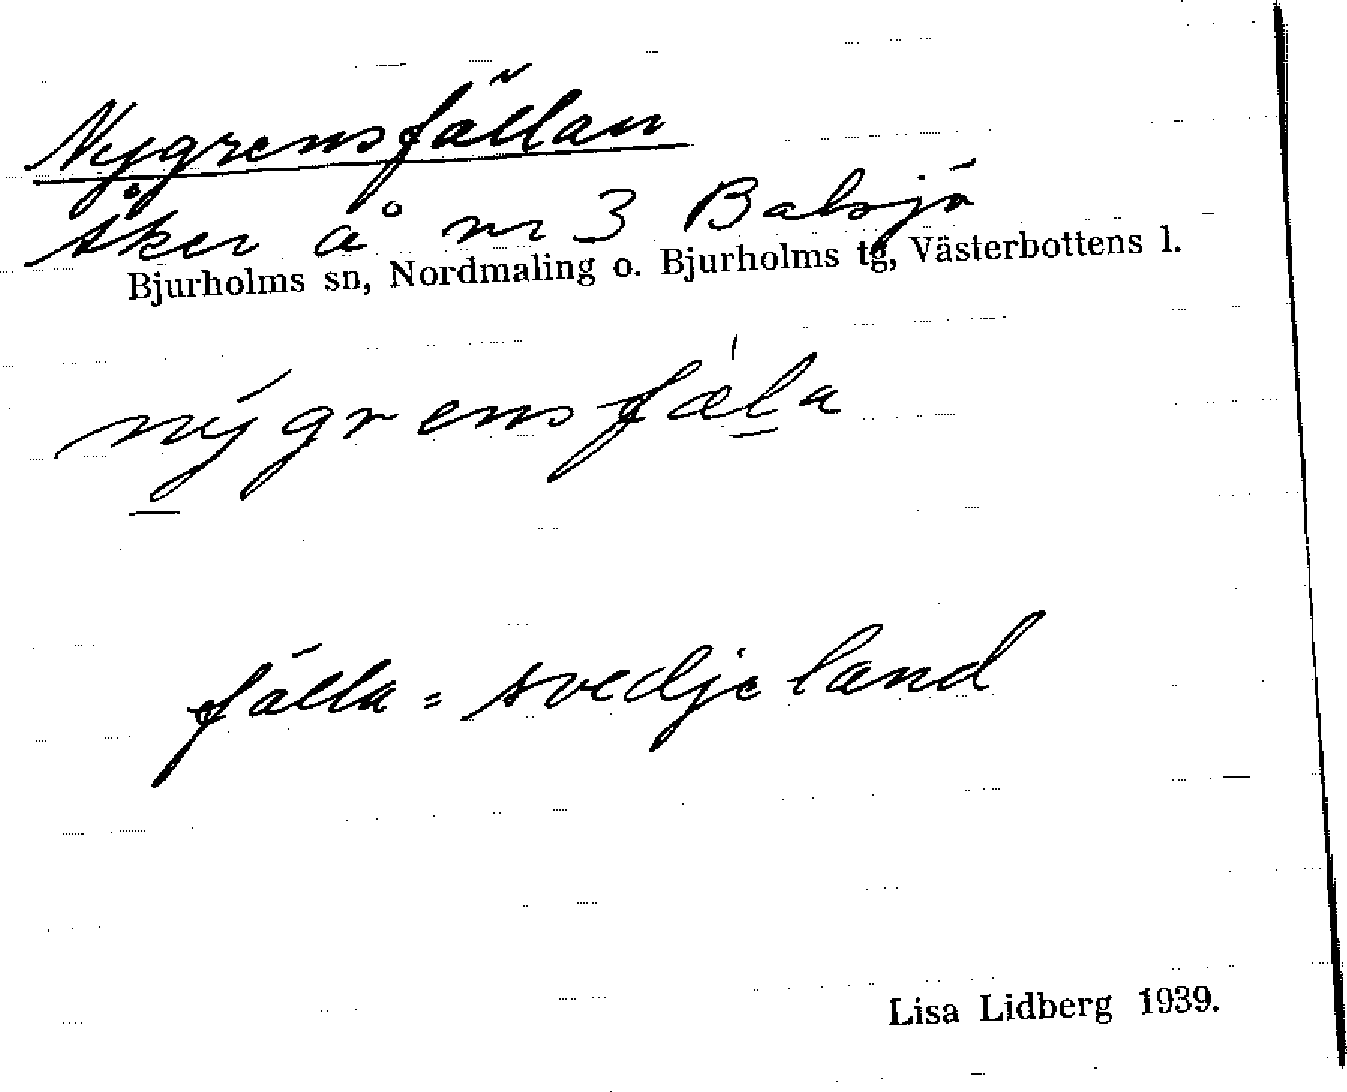 Nygrensfällan
åker å nr 3 Balsjö
Bjurholms sn, Nordmaling o. Bjurholms tg, Västerbottens l.
nýgrensfǽla
fälla = svedjeland
Lisa Lidberg 1939.